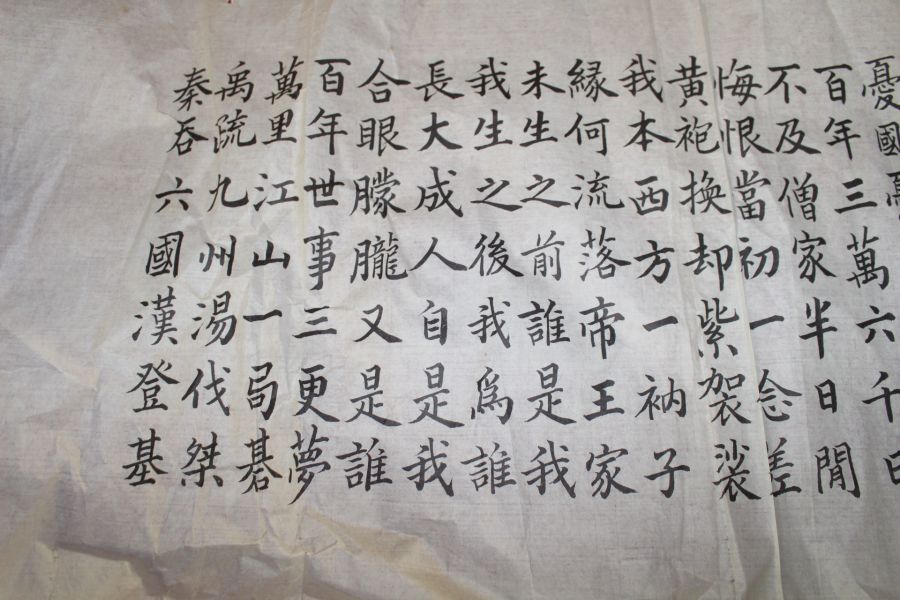 憂國憂
百年三萬六千日
不及僧家半日閒
悔恨當初一念差
黄袍換却紫袈裟
我本西方一衲子
緣何流落帝王家
未生之前誰是我
我生之後我爲誰
長大成人自是我
合眼朦朧又是誰
百年世事三更夢
萬里江山一局碁
禹疏九州湯伐桀
秦吞六國漢登基